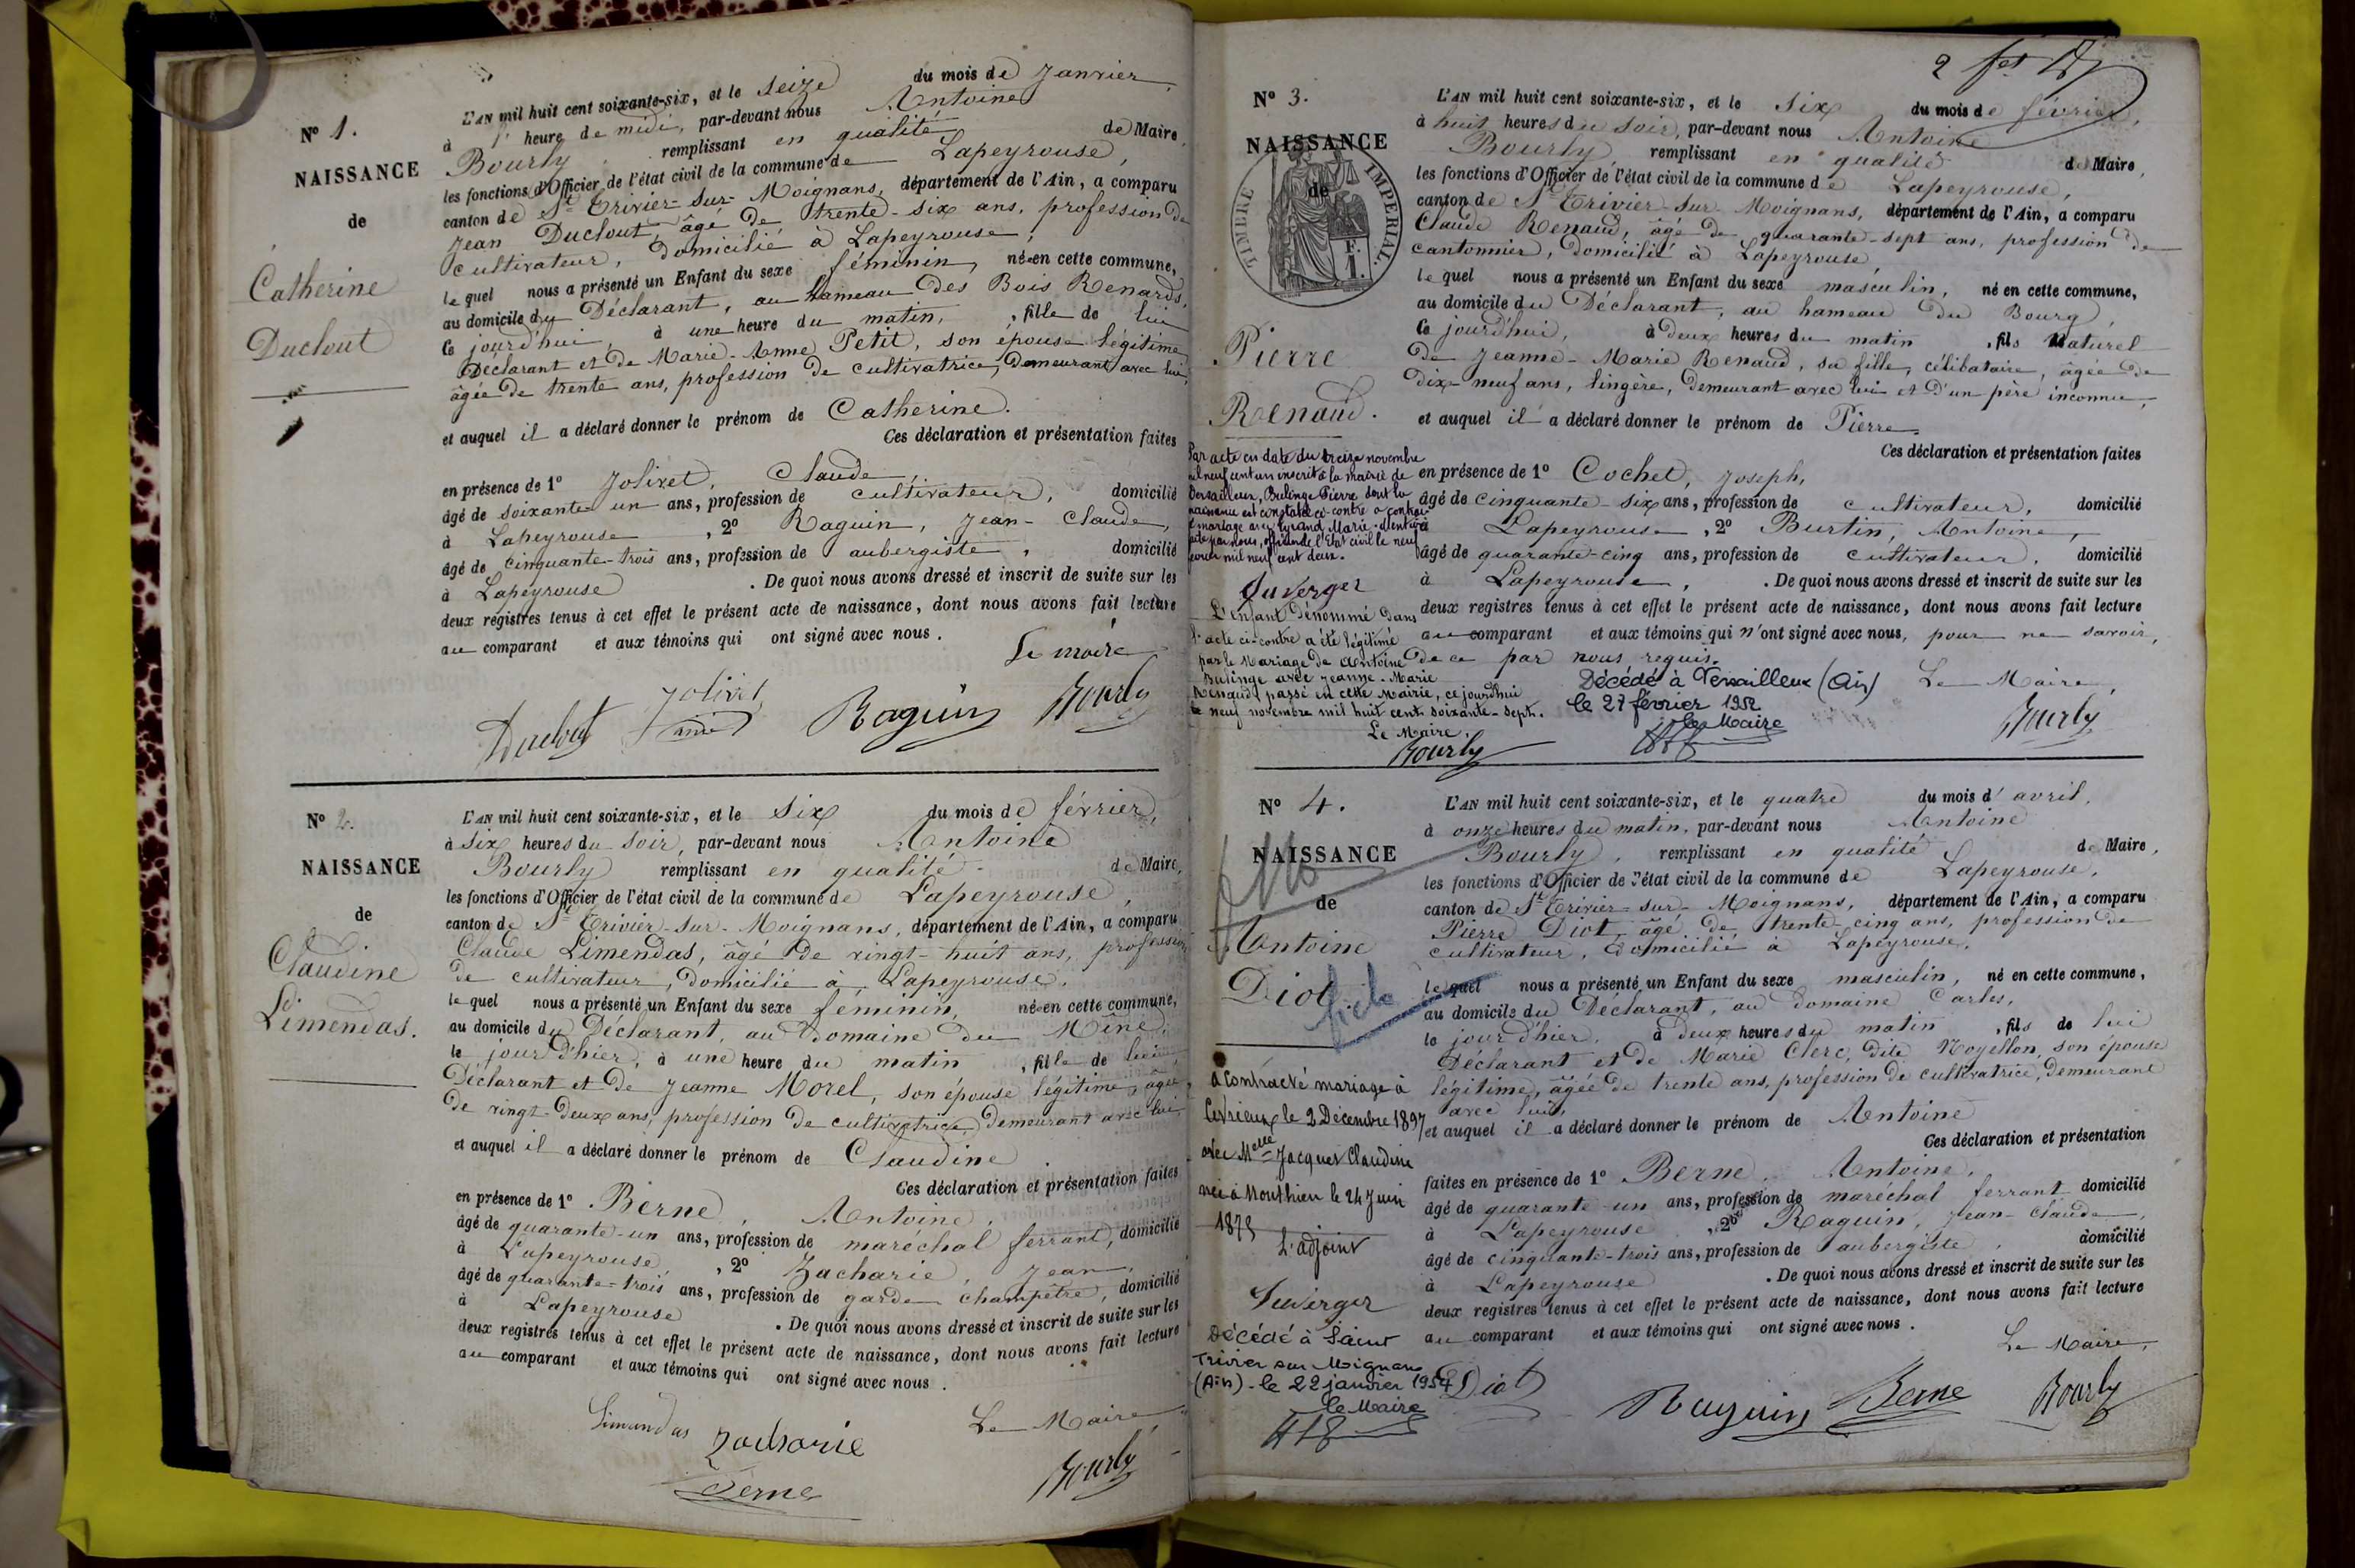 N° 1.
NAISSANCE
de
Catherine
Duclout
L'AN mil huit cent soixante-six, et le seize du mois de Janvier,
à l' heure de midi, par-devant nous Antoine
Bourly remplissant en qualité de Maire,
les fonctions d'Officier de l'état civil de la commune de Lapeyrouse,
canton de St Trivier-sur-Moignans, département de l'Ain, a comparu
Jean Duclout, âgé de trente-six ans, profession de
cultivateur, domicilié à Lapeyrouse,
lequel nous a présenté un Enfant du sexe féminin, née en cette commune,
au domicile du Déclarant, au hameau des Bois Renards,
ce jourd'hui, à une heure du matin, fille de lui
Déclarant et de Marie-Anne Petit, son épouse légitime,
âgée de trente ans, profession de cultivatrice, demeurant avec lui,
et auquel il a déclaré donner le prénom de Catherine.
Ces déclaration et présentation faites
en présence de 1° Jolivet, Claude,
âgé de soixante un ans, profession de cultivateur, domicilié
à Lapeyrouse, 2° Raguin, Jean-Claude,
âgé de cinquante-trois ans, profession de aubergiste, domicilié
à Lapeyrouse. De quoi nous avons dressé et inscrit de suite sur les
deux registres tenus à cet effet le présent acte de naissance, dont nous avons fait lecture
au comparant et aux témoins qui ont signé avec nous.
Le maire
Duclout Jolivet Raguin Bourly
N° 2.
NAISSANCE
de
Claudine
Limendas.
L'AN mil huit cent soixante-six, et le six du mois de février,
à six heures du soir, par-devant nous Antoine
Bourly remplissant en qualité de Maire,
les fonctions d'Officier de l'état civil de la commune de Lapeyrouse,
canton de St Trivier-sur-Moignans, département de l'Ain, a comparu
Claude Limendas, âgé de vingt-huit ans, profession
de cultivateur, domicilié à Lapeyrouse,
lequel nous a présenté un Enfant du sexe féminin, née en cette commune,
au domicile du Déclarant, au domaine du Mîne,
le jour d'hier, à une heure du matin, fille de lui
Déclarant et de Jeanne Morel, son épouse légitime, âgée
de vingt-deux ans, profession de cultivatrice, demeurant avec lui
et auquel il a déclaré donner le prénom de Claudine.
Ces déclaration et présentation faites
en présence de 1° Berne, Antoine,
âgé de quarante-un ans, profession de maréchal ferrant, domicilié
à Lapeyrouse, 2° Zacharie, Jean,
âgé de quarante-trois ans, profession de garde champêtre, domicilié
à Lapeyrouse. De quoi nous avons dressé et inscrit de suite sur les
deux registres tenus à cet effet le présent acte de naissance, dont nous avons fait lecture
au comparant et aux témoins qui ont signé avec nous.
Le Maire,
Limandas Zacharie Bourly
Berne
2
N° 3.
NAISSANCE
de
TIMBRE IMPERIAL
F.
1.
Pierre
Renaud.
Par acte en date du treize novembre
mil neuf cent un inscrit à la mairie de
Versailleux, Bulinge Pierre dont la
naissance est constatée ci-contre a contracté
mariage avec Marie
par nous, officier de l'Etat civil le neuf
mil neuf cent deux.
Juverger
L'enfant dénommé dans
l'acte ci-contre a été légitimé
par le Mariage de Antoine
Bulinge avec Jeanne-Marie
Renaud, passé en cette Mairie, ce jourd'hui
le neuf novembre mil huit cent soixante-sept.
Le Maire,
Bourly
L'AN mil huit cent soixante-six, et le six du mois de février,
à huit heures du soir, par-devant nous Antoine
Bourly remplissant en qualité de Maire,
les fonctions d'Officier de l'état civil de la commune de Lapeyrouse,
canton de St Trivier-sur-Moignans, département de l'Ain, a comparu
Claude Renaud, âgé de quarante-sept ans, profession de
cantonnier, domicilié à Lapeyrouse,
lequel nous a présenté un Enfant du sexe masculin, né en cette commune,
au domicile du Déclarant, au hameau du Bourg,
ce jourd'hui, à deux heures du matin, fils Naturel
de Jeanne-Marie Renaud, sa fille, célibataire, âgée de
dix-neuf ans, lingère, demeurant avec lui et d'un père inconnu,
et auquel il a déclaré donner le prénom de Pierre.
Ces déclaration et présentation faites
en présence de 1° Cochet, Joseph,
âgé de cinquante-six ans, profession de cultivateur, domicilié
à Lapeyrouse, 2° Burtin, Antoine,
âgé de quarante-cinq ans, profession de cultivateur, domicilié
à Lapeyrouse. De quoi nous avons dressé et inscrit de suite sur les
deux registres tenus à cet effet le présent acte de naissance, dont nous avons fait lecture
au comparant et aux témoins qui n'ont signé avec nous, pour ne savoir,
de ce par nous requis.
Décédé à Versailleux (Ain) Le Maire,
le 27 février 1952
le Maire
Bourly
N° 4.
NAISSANCE
de
Antoine
Diot
a contracté mariage à
Civrieux le 2 Décembre 1897
avec Melle Jacquet Claudine
née à Monthieu le 24 Juin
1875
L'adjoint
Juverger
Décédé à Saint
Trivier sur Moignans
(Ain) - le 22 janvier 1954
le Maire
L'AN mil huit cent soixante-six, et le quatre du mois d'avril,
à onze heures du matin, par-devant nous Antoine
Bourly, remplissant en qualité de Maire,
les fonctions d'Officier de l'état civil de la commune de Lapeyrouse,
canton de St Trivier-sur-Moignans, département de l'Ain, a comparu
Pierre Diot, âgé de trente-cinq ans, profession de
cultivateur, domicilié à Lapeyrouse,
lequel nous a présenté un Enfant du sexe masculin, né en cette commune,
au domicile du Déclarant, au domaine Carles,
le jour d'hier, à deux heures du matin, fils de lui
Déclarant et de Marie Clerc, dite Noyellon, son épouse
légitime, âgée de trente ans, profession de cultivatrice, demeurant
avec lui,
et auquel il a déclaré donner le prénom de Antoine
Ces déclaration et présentation
faites en présence de 1° Berne, Antoine,
âgé de quarante-un ans, profession de maréchal ferrant domicilié
à Lapeyrouse, 2° Raguin, Jean-Claude,
âgé de cinquante-trois ans, profession de aubergiste, domicilié
à Lapeyrouse. De quoi nous avons dressé et inscrit de suite sur les
deux registres tenus à cet effet le présent acte de naissance, dont nous avons fait lecture
au comparant et aux témoins qui ont signé avec nous.
Le Maire,
Diot Raguin Berne Bourly